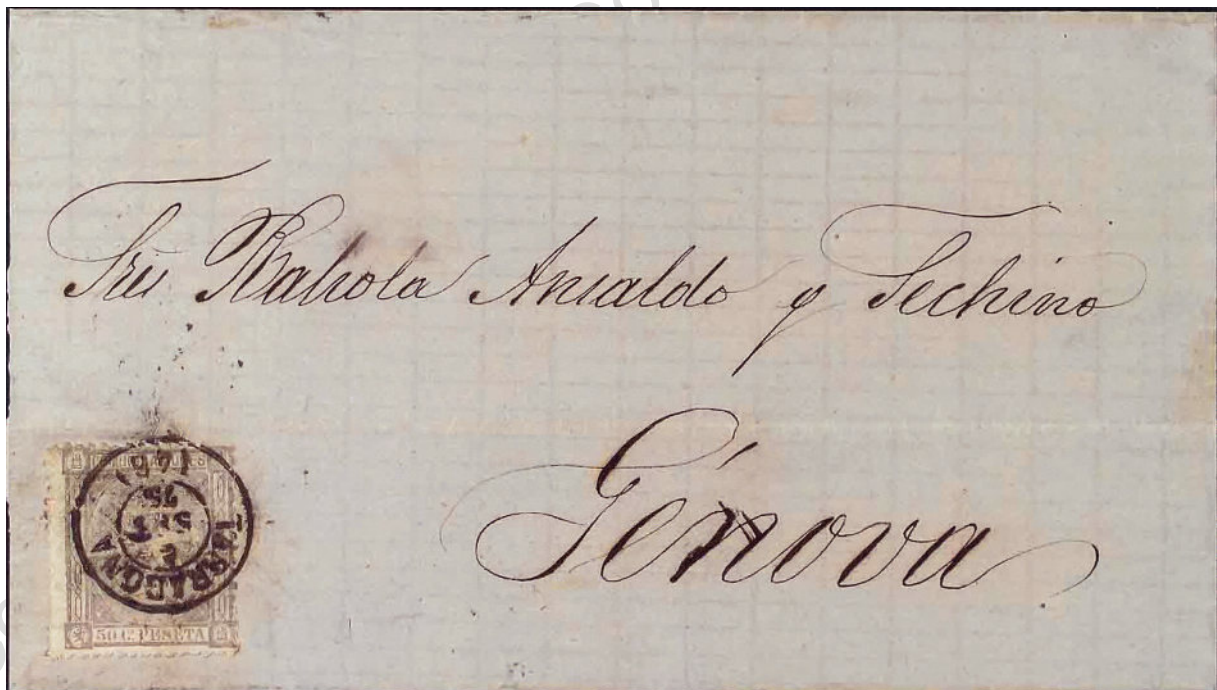 Sres Rahola Ansaldo y Techino
Génova
TARRAGONA
SET
75
50 Cs PESETA